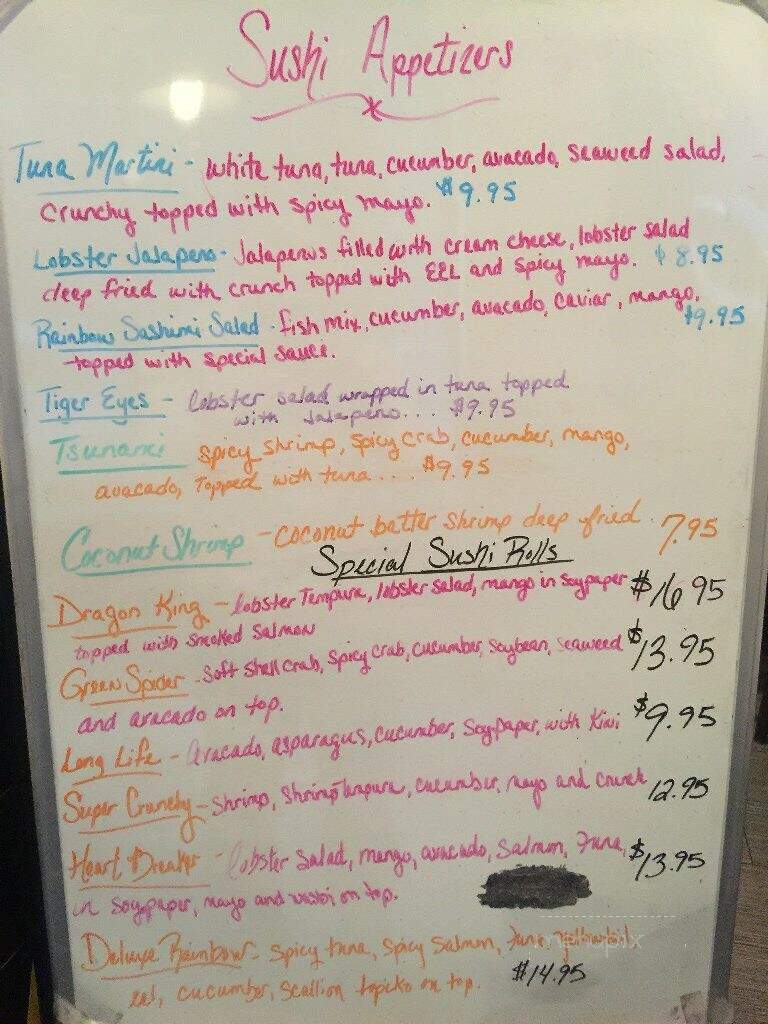 Sushi Appetizers
Tuna Martini - white tuna, tuna, cucumber, avacado, seaweed salad,
crunchy topped with spicy mayo. $9.95
Lobster Jalapeno - Jalapenos filled with cream cheese, lobster salad
deep fried with crunch topped with EEL and spicy mayo. $8.95
Rainbow Sashimi Salad - fish mix, cucumber, avacado, caviar, mango,
topped with special sauce. $9.95
Tiger Eyes - lobster salad wrapped in tuna topped
with Jalapeno... $9.95
Tsunami spicy shrimp, spicy crab, cucumber, mango,
avacado, Topped with tuna.... $9.95
Coconut Shrimp - coconut batter shrimp deep fried. 7.95
Special Sushi Rolls
Dragon King - lobster Tempura, lobster salad, mango in soypaper $16.95
topped with smoked salmon
Green Spider - Soft shell crab, spicy crab, cucumber, soybean, seaweed $13.95
and avacado on top.
Long Life - avacado, asparagus, cucumber, soypaper, with kiwi $9.95
Super Crunchy - Shrimp, Shrimp Tempura, cucumber, mayo and crunch 12.95
Heart Breaker - lobster Salad, mango, avacado, Salmon, Tuna, $13.95
in soypaper, mayo and on top.
Deluxe Rainbow - spicy tuna, spicy salmon, tuna, yellowtail
eel, cucumber, scallion topiko on top. $14.95